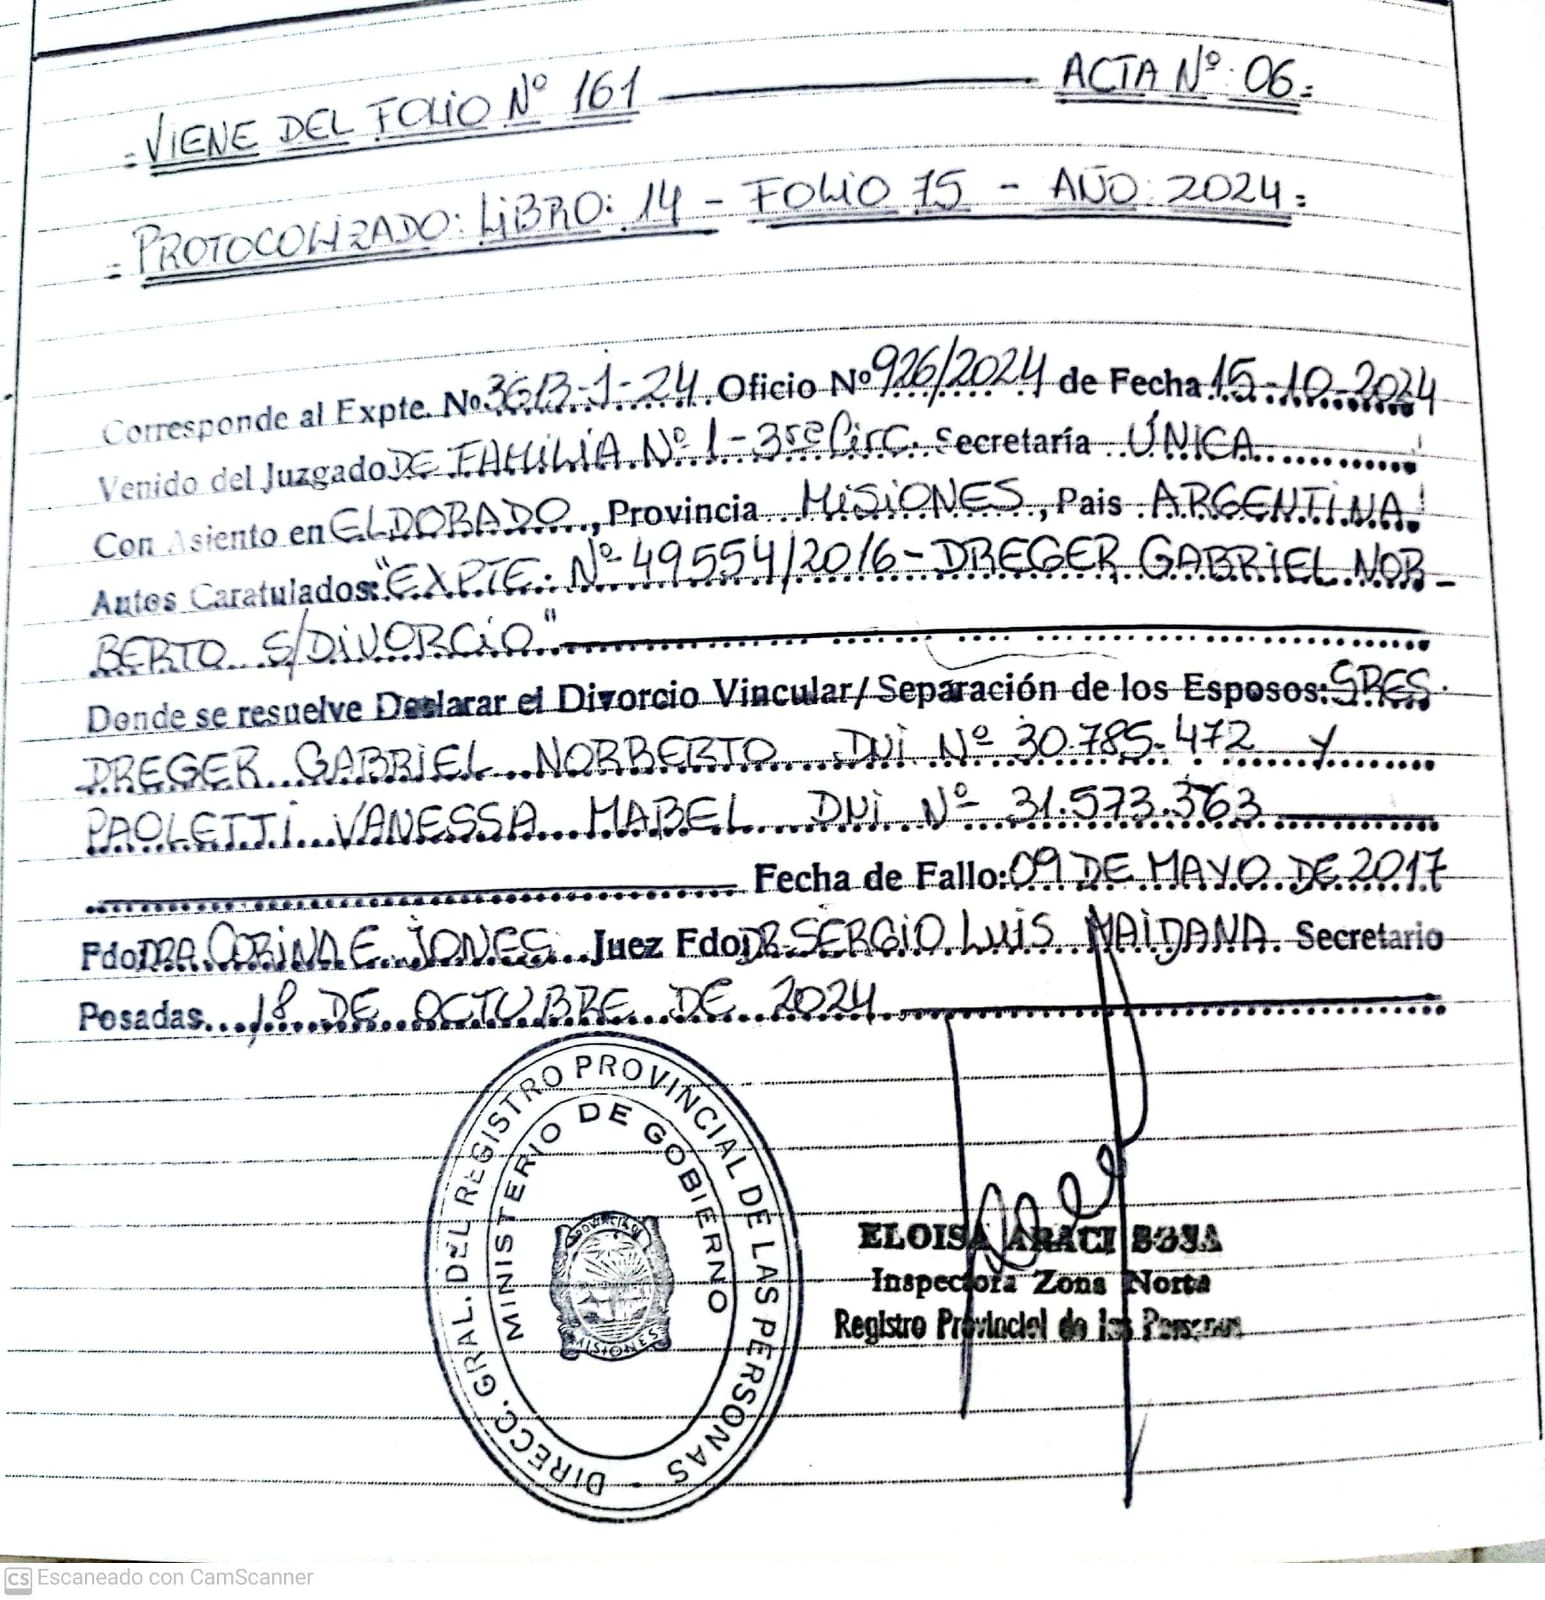 = VIENE DEL FOLIO Nº 161 ACTA Nº: 06 =
= PROTOCOLIZADO: LIBRO: 14 - FOLIO 75 - AÑO: 2024 =
Corresponde al Expte. Nº 3613-J-24 Oficio Nº 926/2024 de Fecha 15-10-2024
Venido del Juzgado DE FAMILIA Nº 1 - 3ra Circ. Secretaría ÚNICA
Con Asiento en ELDORADO, Provincia MISIONES, Pais ARGENTINA
Autos Caratulados: "EXPTE. Nº 49554/2016 - DREGER GABRIEL NOR-
BERTO S/DIVORCIO"
Donde se resuelve Declarar el Divorcio Vincular/Separación de los Esposos: SRES.
DREGER GABRIEL NORBERTO DNI Nº 30.785.472 y
PAOLETTI VANESSA MABEL DNI Nº 31.573.363
Fecha de Fallo: 09 DE MAYO DE 2017
Fdo DRA. CORINA E. JONES Juez Fdo; DR. SERGIO LUIS MAIDANA. Secretario
Posadas 18 DE OCTUBRE DE 2024
DIRECC. GRAL. DEL REGISTRO PROVINCIAL DE LAS PERSONAS -
MINISTERIO DE GOBIERNO
PROVINCIA DE
MISIONES
ELOISA ARACI SOSA
Inspectora Zona Norte
Registro Provincial de las Personas
CS Escaneado con CamScanner